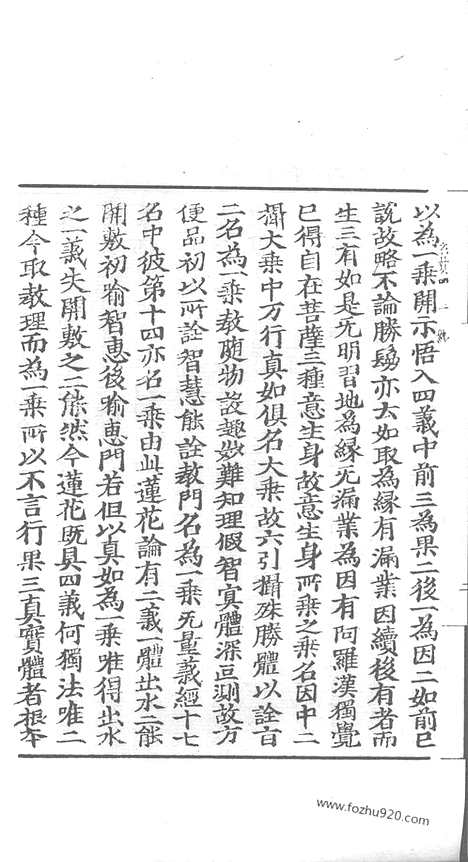 以為一乗開示悟入四義中前三為果二後一為因二如前已
說故略不論勝鬘亦云如取為縁有漏業因續後有者而
生三有如是无明習地為縁无漏業為因有阿羅漢獨覺
已得自在菩薩三種意生身故意生身所乗之乗名因中二
攝大乗中万行真如俱名大乗故六引攝殊勝體以詮言
二名為一乗教随物設趣妙難知理假智㝠體深叵測故方
便品初以所詮智慧能詮教門名為一乗无量義經十七
名中彼第十四亦名一乗由此蓮花論有二義一體出水二能
開敷初喻智恵後喻恵門若但以真如為一乗唯得出水
之一義失開敷之二能然今蓮花既具四義何獨法唯二
種今取教理而為一乗所以不言行果三真實體者根本
www.fozhu920.com